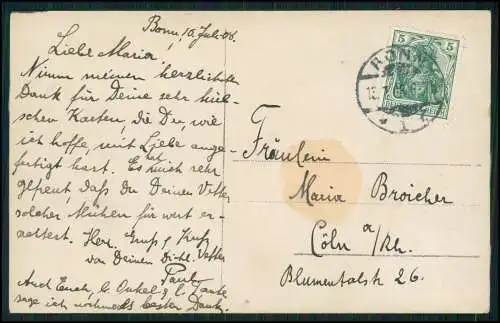 Bonn, 10. Juli 06.
Liebe Maria!
Nimm meinen herzlichsten
Dank für Deine sehr hüb-
schen Karten, die Du, wie
ich hoffe, mit Liebe ange-
fertigt hast. Es hat mich sehr
gefreut, daß Du Deinen Vetter
solcher Mühen für wert er-
achtest. Herz. Gruß & Kuß
von Deinem Dich l. Vetter
Paul
Auch Euch, l. Onkel & l. Tante
sage ich nochmals besten Dank.
5 5
BONN
1
Fräulein
Maria Broicher
Cöln a/Rh.
Blumentalstr 26.